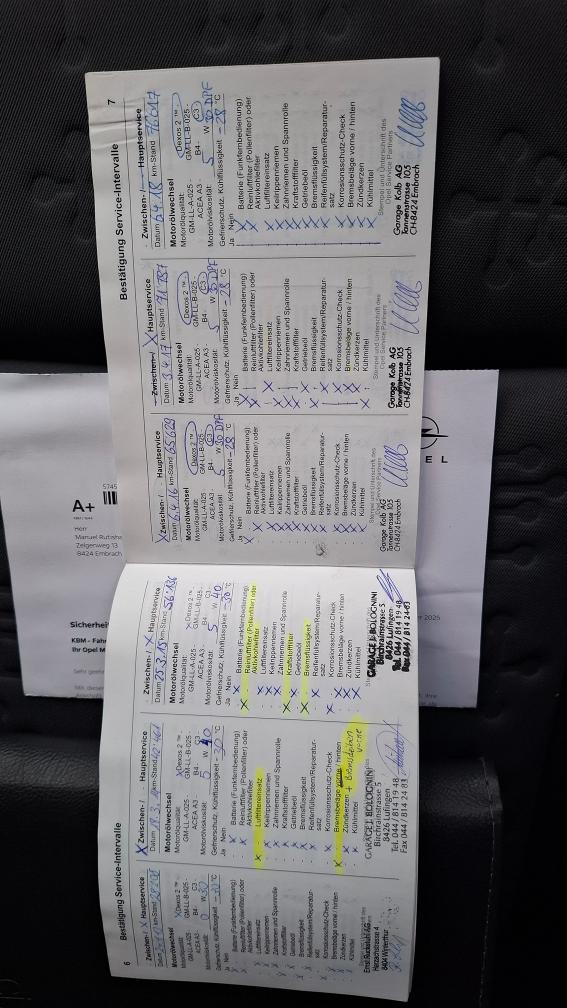 Bestätigung Service-Intervalle
6
Zwischen- / X Hauptservice
Datum
km-Stand
Motorölwechsel
Motorölqualität:
X Dexos 2 ™
GM-LL-A-025
GM-LL-B-025
ACEA A3
B4
C3
Motorviskosität:
0 W 30
Gefrierschutz, Kühlflüssigkeit -30 °C
Ja Nein
Batterie (Funkfernbedienung)
Reinluftfilter (Pollenfilter) oder
Aktivkohlefilter
Luftfiltereinsatz
Keilrippenriemen
Zahnriemen und Spannrolle
Kraftstofffilter
Getriebeöl
Bremsflüssigkeit
Reifenfüllsystem/Reparatur-
satz
Korrosionsschutz-Check
Bremsbeläge vorne / hinten
Zündkerzen
Kühlmittel
8404 Winterthur
X Zwischen- / Hauptservice
Datum
km-Stand
Motorölwechsel
Motorölqualität:
X Dexos 2 ™
GM-LL-A-025
GM-LL-B-025
ACEA A3
B4
C3
Motorviskosität:
5 W 40
Gefrierschutz, Kühlflüssigkeit -30 °C
Ja Nein
Batterie (Funkfernbedienung)
Reinluftfilter (Pollenfilter) oder
Aktivkohlefilter
Luftfiltereinsatz
Keilrippenriemen
Zahnriemen und Spannrolle
Kraftstofffilter
Getriebeöl
Bremsflüssigkeit
Reifenfüllsystem/Reparatur-
satz
Korrosionsschutz-Check
Bremsbeläge vorne / hinten
Zündkerzen
Kühlmittel
GARAGE F. BOLOGNINI
Birchrainstrasse 5
8426 Lufingen
Tel. 044 / 814 19 48
Fax 044 / 814 24 83
Zwischen- / X Hauptservice
Datum 25.3.15 km-Stand
Motorölwechsel
Motorölqualität:
X Dexos 2 ™
GM-LL-A-025
GM-LL-B-025
ACEA A3
B4
C3
Motorviskosität:
5 W 40
Gefrierschutz, Kühlflüssigkeit -30 °C
Ja Nein
Batterie (Funkfernbedienung)
Reinluftfilter (Pollenfilter) oder
Aktivkohlefilter
Luftfiltereinsatz
Keilrippenriemen
Zahnriemen und Spannrolle
Kraftstofffilter
Getriebeöl
Bremsflüssigkeit
Reifenfüllsystem/Reparatur-
satz
Korrosionsschutz-Check
Bremsbeläge vorne / hinten
Zündkerzen
Kühlmittel
GARAGE F. BOLOGNINI
Birchrainstrasse 5
8426 Lufingen
Tel. 044 / 814 19 48
Fax 044 / 814 24 83
Bestätigung Service-Intervalle
7
X Zwischen- / Hauptservice
Datum 6.4.16 km-Stand 65629
Motorölwechsel
Motorölqualität:
Dexos 2 ™
GM-LL-A-025
GM-LL-B-025
ACEA A3
B4
C3
Motorviskosität:
5 W 30 DPF
Gefrierschutz, Kühlflüssigkeit -28 °C
Ja Nein
Batterie (Funkfernbedienung)
Reinluftfilter (Pollenfilter) oder
Aktivkohlefilter
Luftfiltereinsatz
Keilrippenriemen
Zahnriemen und Spannrolle
Kraftstofffilter
Getriebeöl
Bremsflüssigkeit
Reifenfüllsystem/Reparatur-
satz
Korrosionsschutz-Check
Bremsbeläge vorne / hinten
Zündkerzen
Kühlmittel
Stempel und Unterschrift des
Opel Service Partners
Garage Kolb AG
Tannenstrasse 105
CH-8424 Embrach
Zwischen- / X Hauptservice
Datum 3.4.17 km-Stand 71787
Motorölwechsel
Motorölqualität:
Dexos 2 ™
GM-LL-A-025
GM-LL-B-025
ACEA A3
B4
C3
Motorviskosität:
5 W 30 DPF
Gefrierschutz, Kühlflüssigkeit -28 °C
Ja Nein
Batterie (Funkfernbedienung)
Reinluftfilter (Pollenfilter) oder
Aktivkohlefilter
Luftfiltereinsatz
Keilrippenriemen
Zahnriemen und Spannrolle
Kraftstofffilter
Getriebeöl
Bremsflüssigkeit
Reifenfüllsystem/Reparatur-
satz
Korrosionsschutz-Check
Bremsbeläge vorne / hinten
Zündkerzen
Kühlmittel
Stempel und Unterschrift des
Opel Service Partners
Garage Kolb AG
Tannenstrasse 105
CH-8424 Embrach
Zwischen- / Hauptservice
Datum 6.4.18 km-Stand 76017
Motorölwechsel
Motorölqualität:
Dexos 2 ™
GM-LL-A-025
GM-LL-B-025
ACEA A3
B4
C3
Motorviskosität:
5 W 30 DPF
Gefrierschutz, Kühlflüssigkeit -28 °C
Ja Nein
Batterie (Funkfernbedienung)
Reinluftfilter (Pollenfilter) oder
Aktivkohlefilter
Luftfiltereinsatz
Keilrippenriemen
Zahnriemen und Spannrolle
Kraftstofffilter
Getriebeöl
Bremsflüssigkeit
Reifenfüllsystem/Reparatur-
satz
Korrosionsschutz-Check
Bremsbeläge vorne / hinten
Zündkerzen
Kühlmittel
Stempel und Unterschrift des
Opel Service Partners
Garage Kolb AG
Tannenstrasse 105
CH-8424 Embrach
A+
5745
Herr
Manuel
Zelgenweg 13
8424 Embrach
Sicherheit
KBM - Fahr
Ihr Opel M
2025
E L